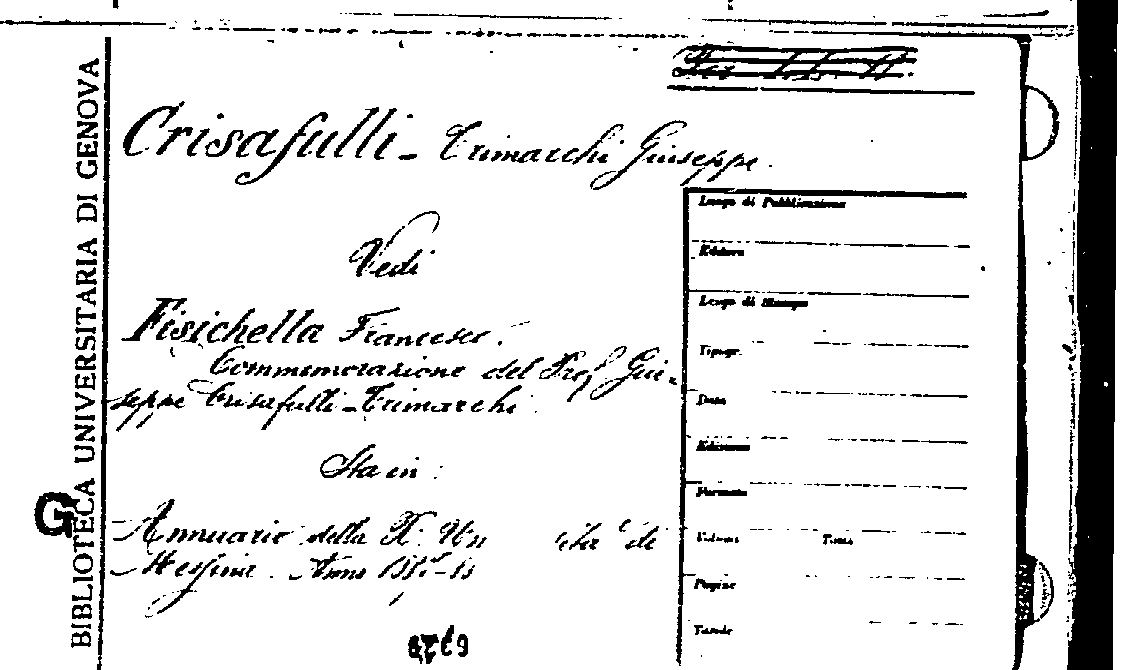 BIBLIOTECA UNIVERSITARIA DI GENOVA
G
Crisafulli - Trimarchi Giuseppe.
Vedi
Fisichella Francesco.
Commemorazione del Prof Giu-
seppe Crisafulli-Trimarchi
Sta in:
Annuario della R. Un ità di
Messina. Anno
Luogo di Pubblicazione
Editore
Luogo di Stampa
Tipogr.
Data
Edizione
Formato
Volumi Tomo
Pagine
Tavole